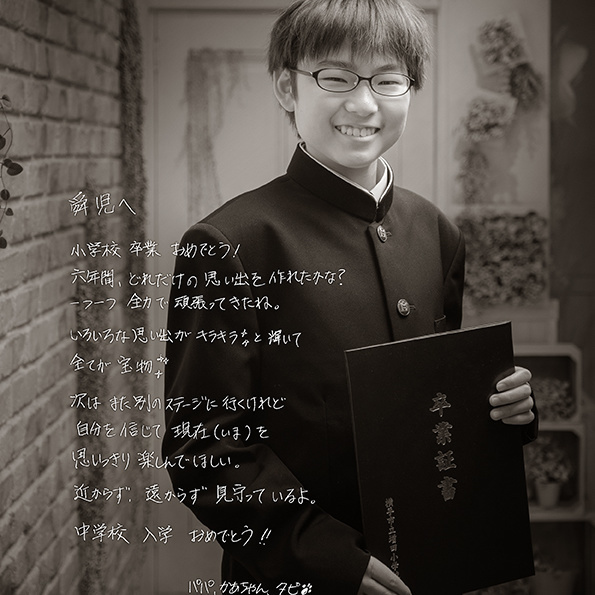 舜児へ
小学校 卒業 おめでとう!
六年間、どれだけの思い出を作れたかな?
一つ一つ 全力で 頑張ってきたね。
いろいろな思い出がキラキラッと輝いて
全てが宝物
次は また別のステージに行くけれど
自分を信じて 現在(いま)を
思いっきり 楽しんでほしい。
近からず、遠からず 見守っているよ。
中学校 入学 おめでとう!!
パパ、かあちゃん、タピ
卒業証書